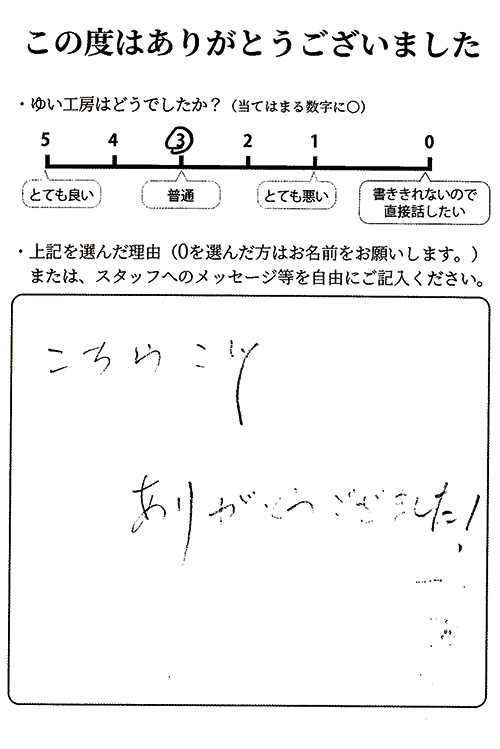 この度はありがとうございました
・ゆい工房はどうでしたか？（当てはまる数字に〇）
5 4 3 2 1 0
とても良い 普通 とても悪い 書ききれないので直接話したい
・上記を選んだ理由（0を選んだ方はお名前をお願いします。）
または、スタッフへのメッセージ等を自由にご記入ください。
こちらこそ
ありがとうございました！